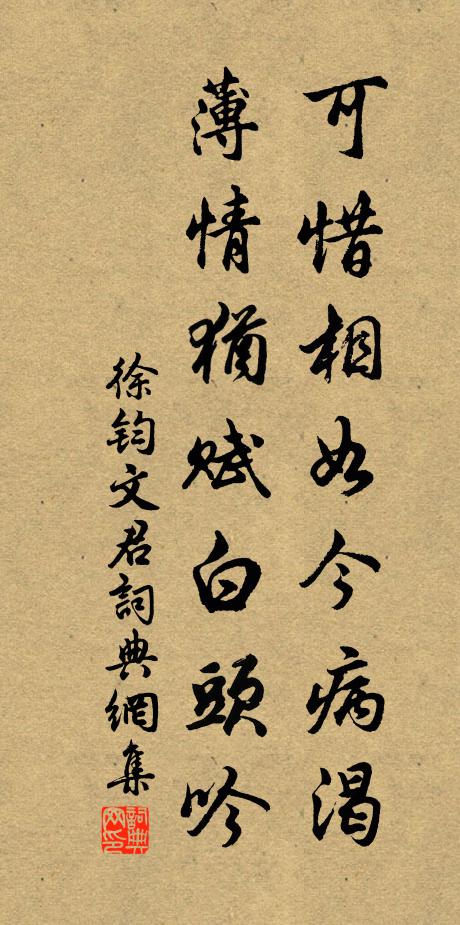 可惜相如今病渴
薄情猶賦白頭吟
徐鈞文君詞典網集
詞典網印